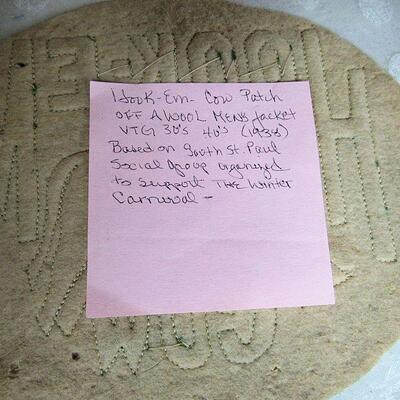 Hook-Em-Cow Patch
OFF A WOOL MENS Jacket
VTG 30's 40's (1938)
Based on South St. Paul
Social Group organized
to Support THE Winter
Carnival -